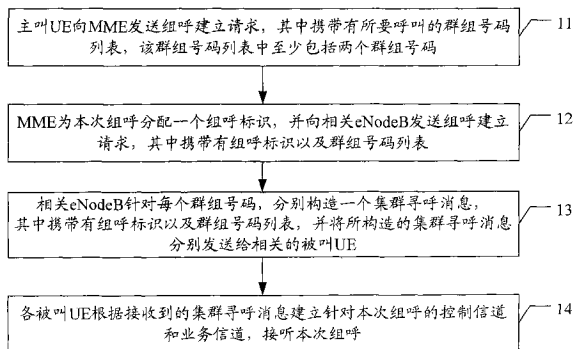 主叫UE向MME发送组呼建立请求，其中携带有所要呼叫的群组号码
列表，该群组号码列表中至少包括两个群组号码
11
MME为本次组呼分配一个组呼标识，并向相关eNodeB发送组呼建立
请求，其中携带有组呼标识以及群组号码列表
12
相关eNodeB针对每个群组号码，分别构造一个集群寻呼消息，
其中携带有组呼标识以及群组号码列表，并将所构造的集群寻呼消息
分别发送给相关的被叫UE
13
各被叫UE根据接收到的集群寻呼消息建立针对本次组呼的控制信道
和业务信道，接听本次组呼
14